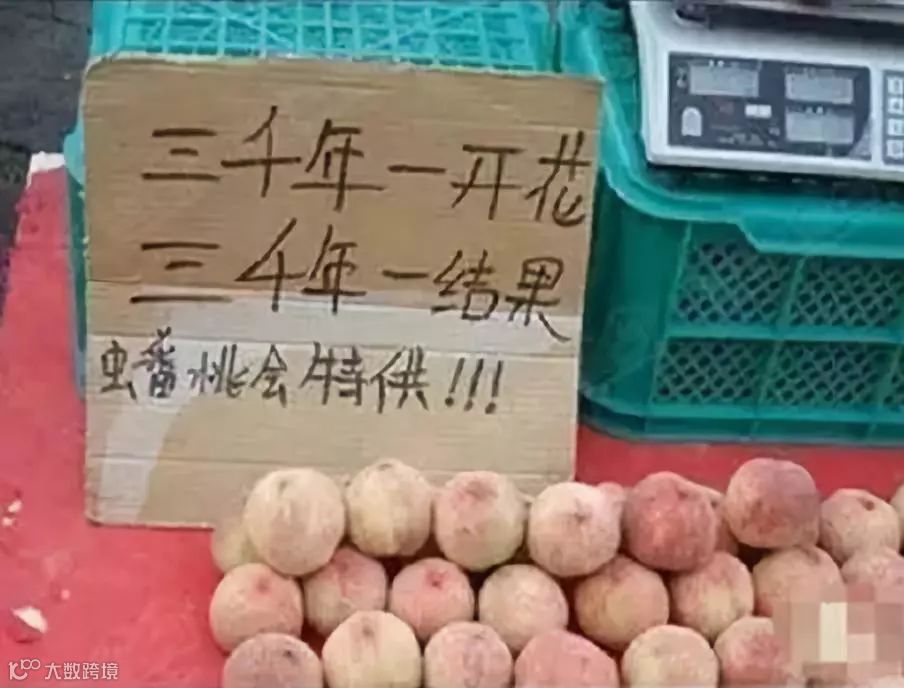 三千年一开花
三千年一结果
蟠桃会特供!!!
大数跨境